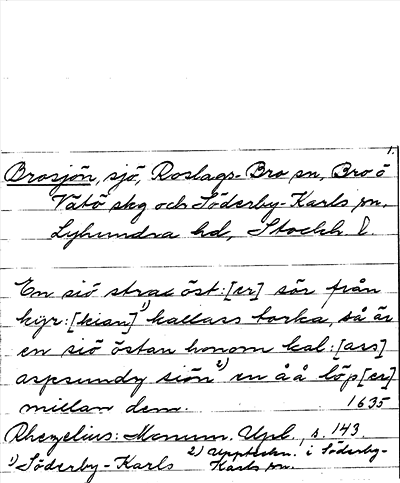 1.
Brosjön, sjö, Roslags-Bro sn, Bro o
Vätö skg och Söderby-Karls sn,
Lyhundra hd, Stockh l
En siö strax öst:[er] sör från
kijr:[kian] 1) kallass torka, så är
en siö östan honom kal:[ass]
aspsundz siön 2) en åå löp[er]
millan dem. 1635
Rhezelius: Monum. Upl., s. 143.
1) Söderby-Karls 2) Uppteckn. i Söderby-
Karls sn.